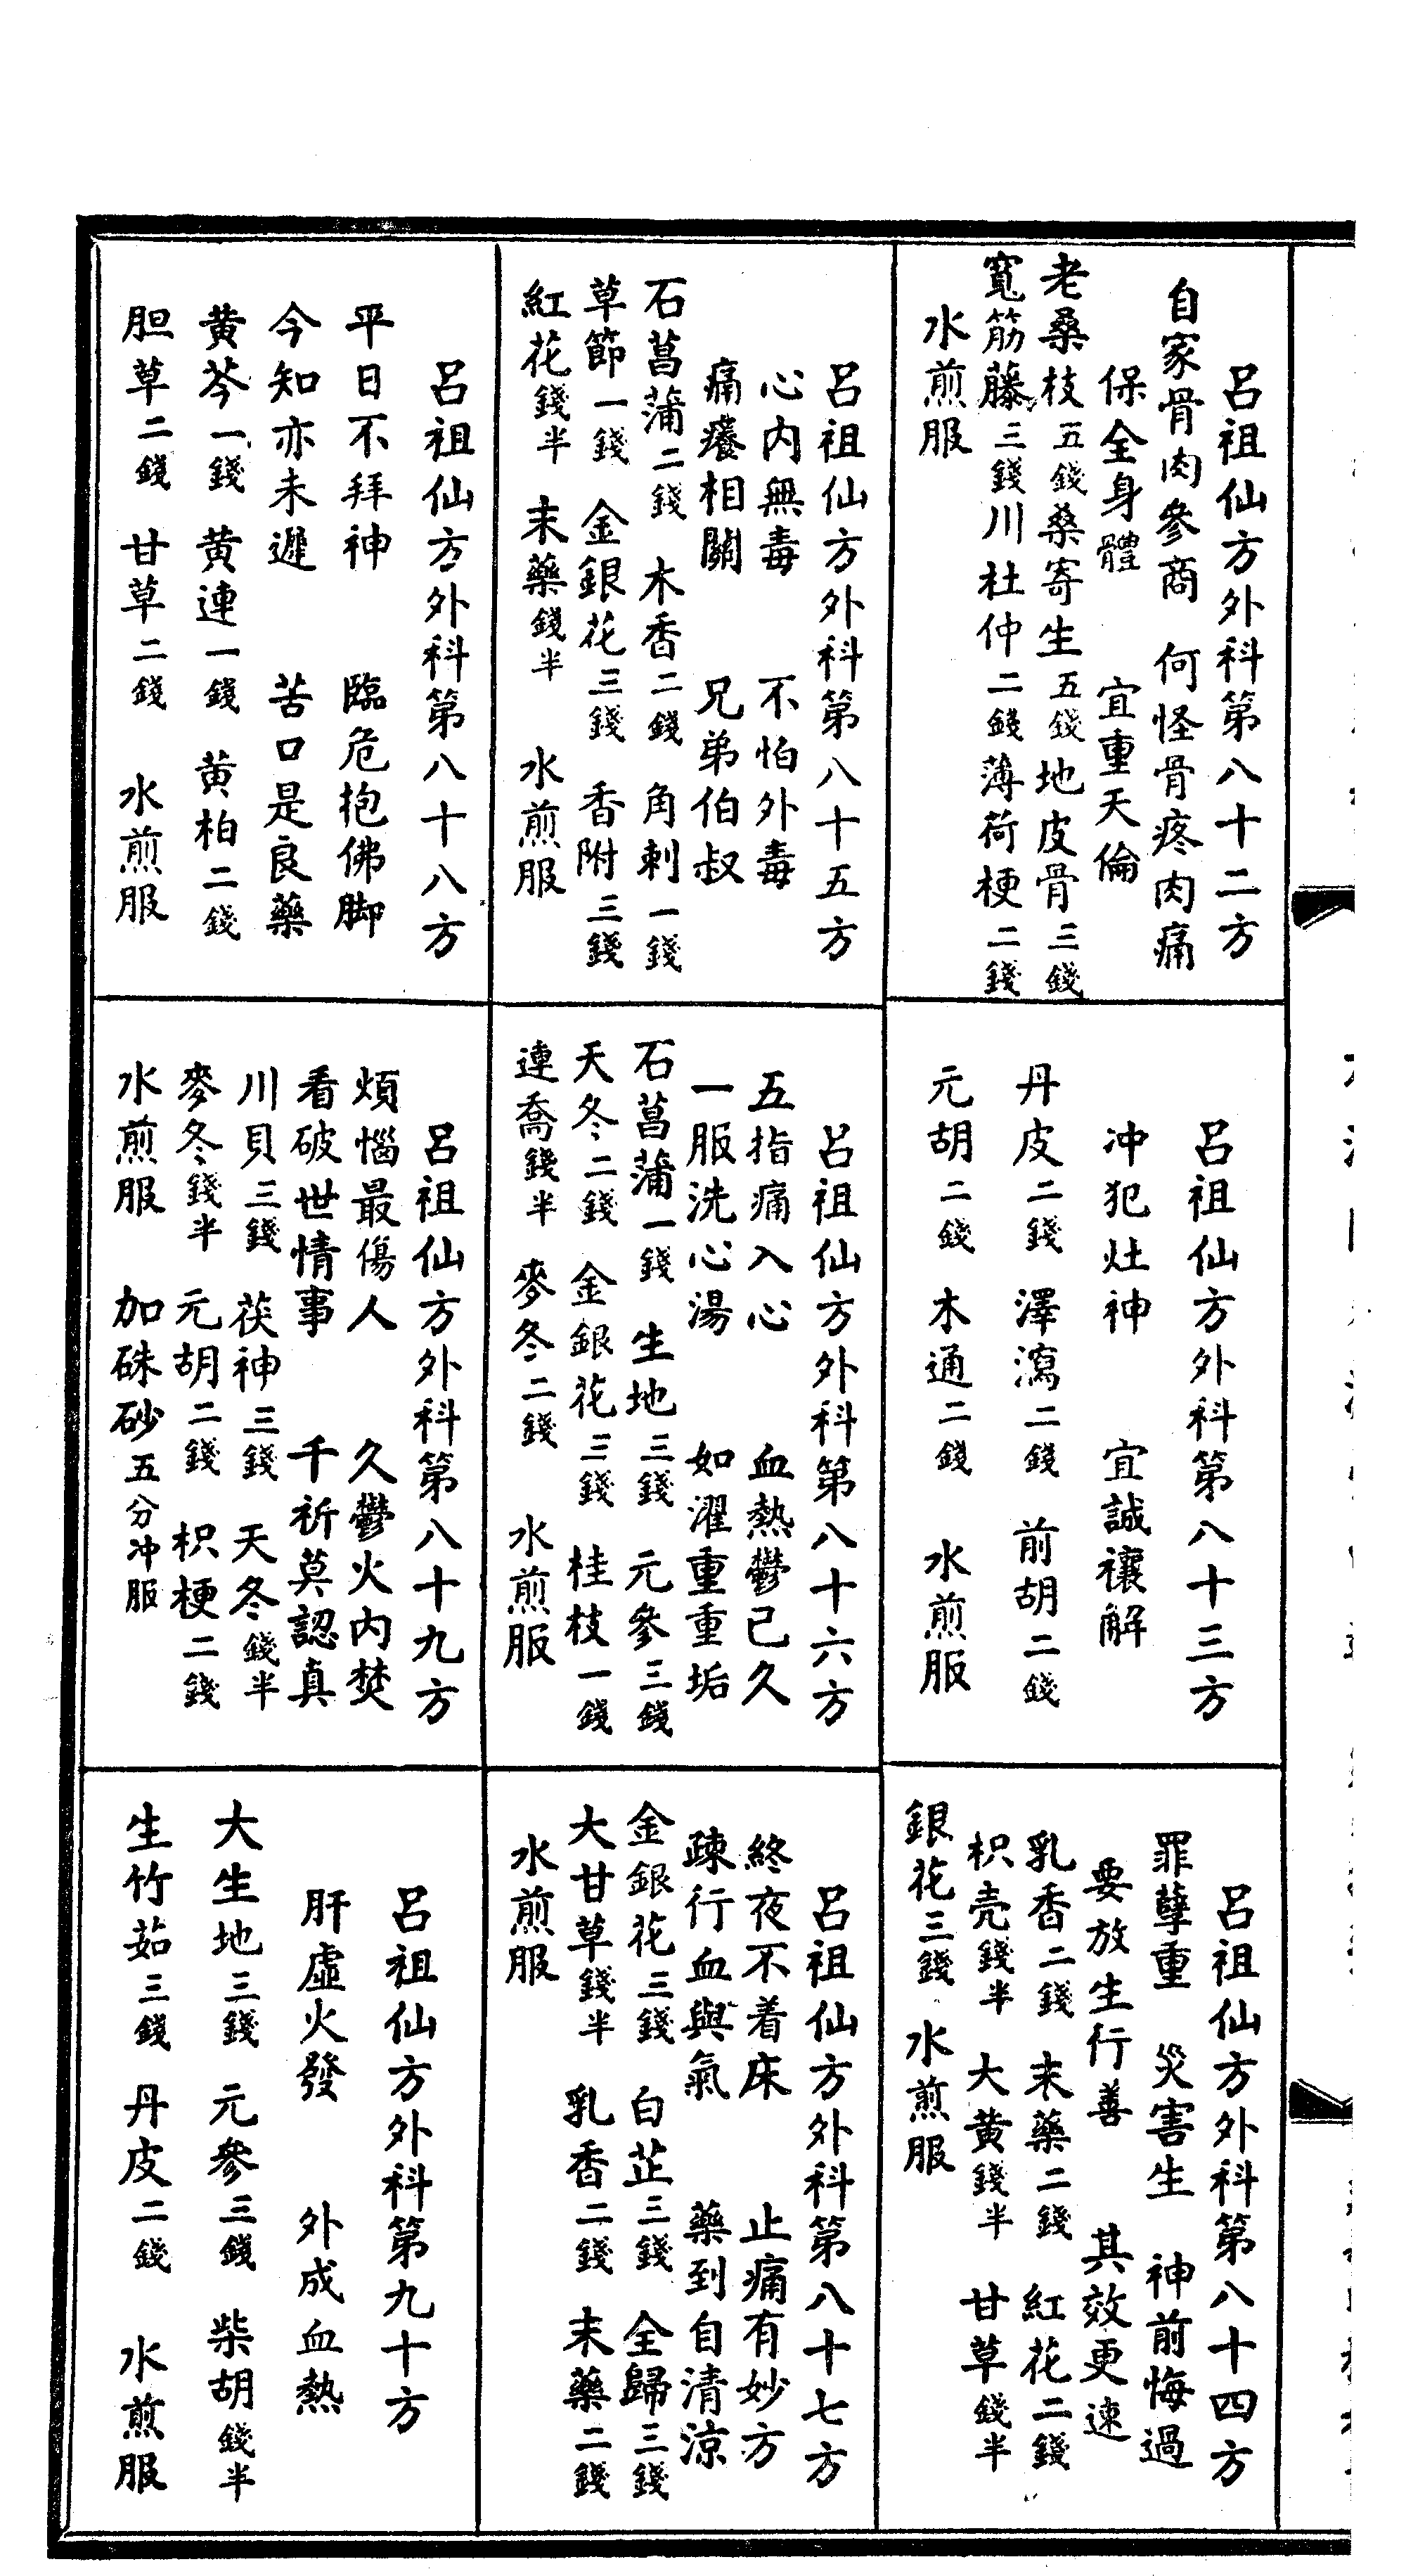 呂祖仙方外科第八十二方
自家骨肉參商　何怪骨疼肉痛
保全身體　宜重天倫
老桑枝五錢桑寄生五錢地皮骨三錢
寬筋藤三錢川杜仲二錢薄荷梗二錢
水煎服
呂祖仙方外科第八十三方
冲犯灶神　宜誠禳解
丹皮二錢　澤瀉二錢　前胡二錢
元胡二錢　木通二錢　水煎服
呂祖仙方外科第八十四方
罪孽重　災害生　神前悔過
要放生行善　其效更速
乳香二錢　末藥二錢　紅花二錢
枳壳錢半　大黄錢半　甘草錢半
銀花三錢　水煎服
呂祖仙方外科第八十五方
心内無毒　不怕外毒
痛癢相關　兄弟伯叔
石菖蒲二錢　木香二錢　角刺一錢
草節一錢　金銀花三錢　香附三錢
紅花錢半　末藥錢半　水煎服
呂祖仙方外科第八十六方
五指痛入心　血熱鬱已久
一服洗心湯　如濯重重垢
石菖蒲一錢　生地三錢　元參三錢
天冬二錢　金銀花三錢　桂枝一錢
連喬錢半　麥冬二錢　水煎服
呂祖仙方外科第八十七方
終夜不着床　止痛有妙方
疎行血與氣　藥到自清涼
金銀花三錢　白芷三錢　全歸三錢
大甘草錢半　乳香二錢　末藥二錢
水煎服
呂祖仙方外科第八十八方
平日不拜神　臨危抱佛脚
今知亦未遲　苦口是良藥
黄芩一錢　黄連一錢　黄柏二錢
胆草二錢　甘草二錢　水煎服
呂祖仙方外科第八十九方
煩惱最傷人　久鬱火内焚
看破世情事　千祈莫認真
川貝三錢　茯神三錢　天冬錢半
麥冬錢半　元胡二錢　枳梗二錢
水煎服　加硃砂五分冲服
呂祖仙方外科第九十方
肝虛火發　外成血熱
大生地三錢　元參三錢　柴胡錢半
生竹茹三錢　丹皮二錢　水煎服